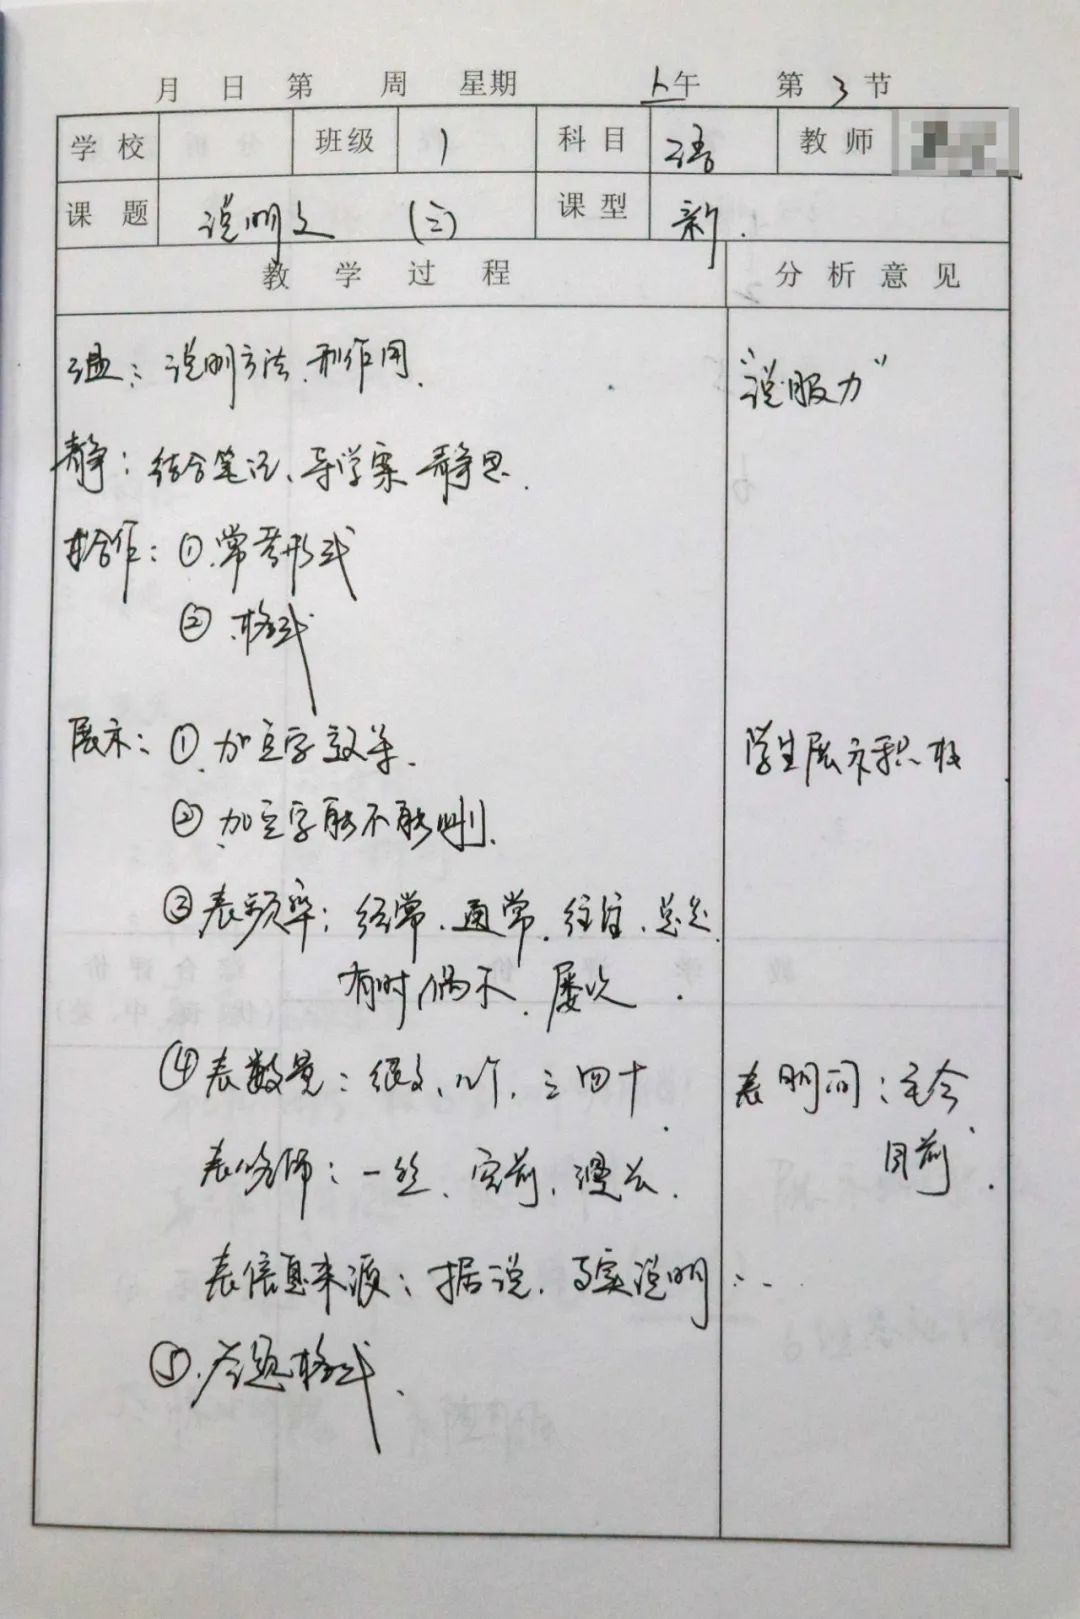 月 日 第 周 星期 上午 第 3 节
学校 班级 1 科目 语 教师
课题 说明文 (三) 课型 新.
教学过程 分析意见
温：说明方法 和作用. “说服力”
静：结合笔记、导学案 静思.
合作：① 常考形式
② 格式
展示：① 加点字效果. 学生展示积极
② 加点字能不能删.
③ 表频率：经常、通常、往往、总是
有时 偶尔、屡次.
④ 表数量：很多、几个、三四十. 表时间：至今
表修饰：一丝、空前、漫长. 目前.
表信息来源：据说、事实说明……
⑤ 答题格式.